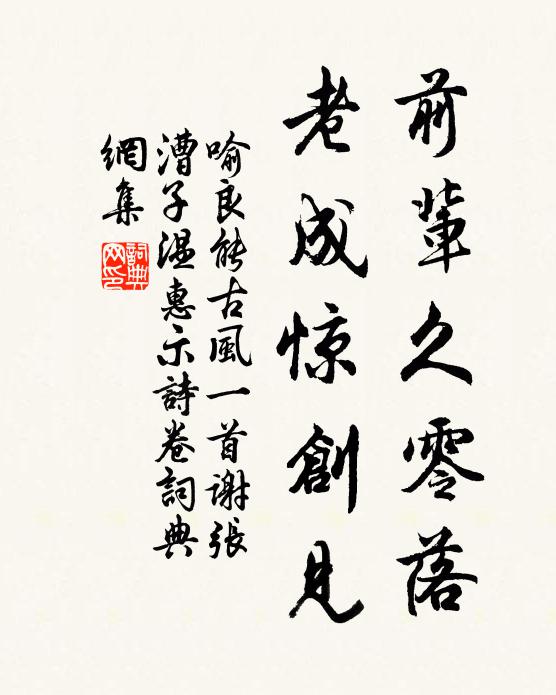 前輩久零落
老成惊創見
喻良能古風一首谢張
漕子温惠示詩卷詞典
網集
詞典
网印